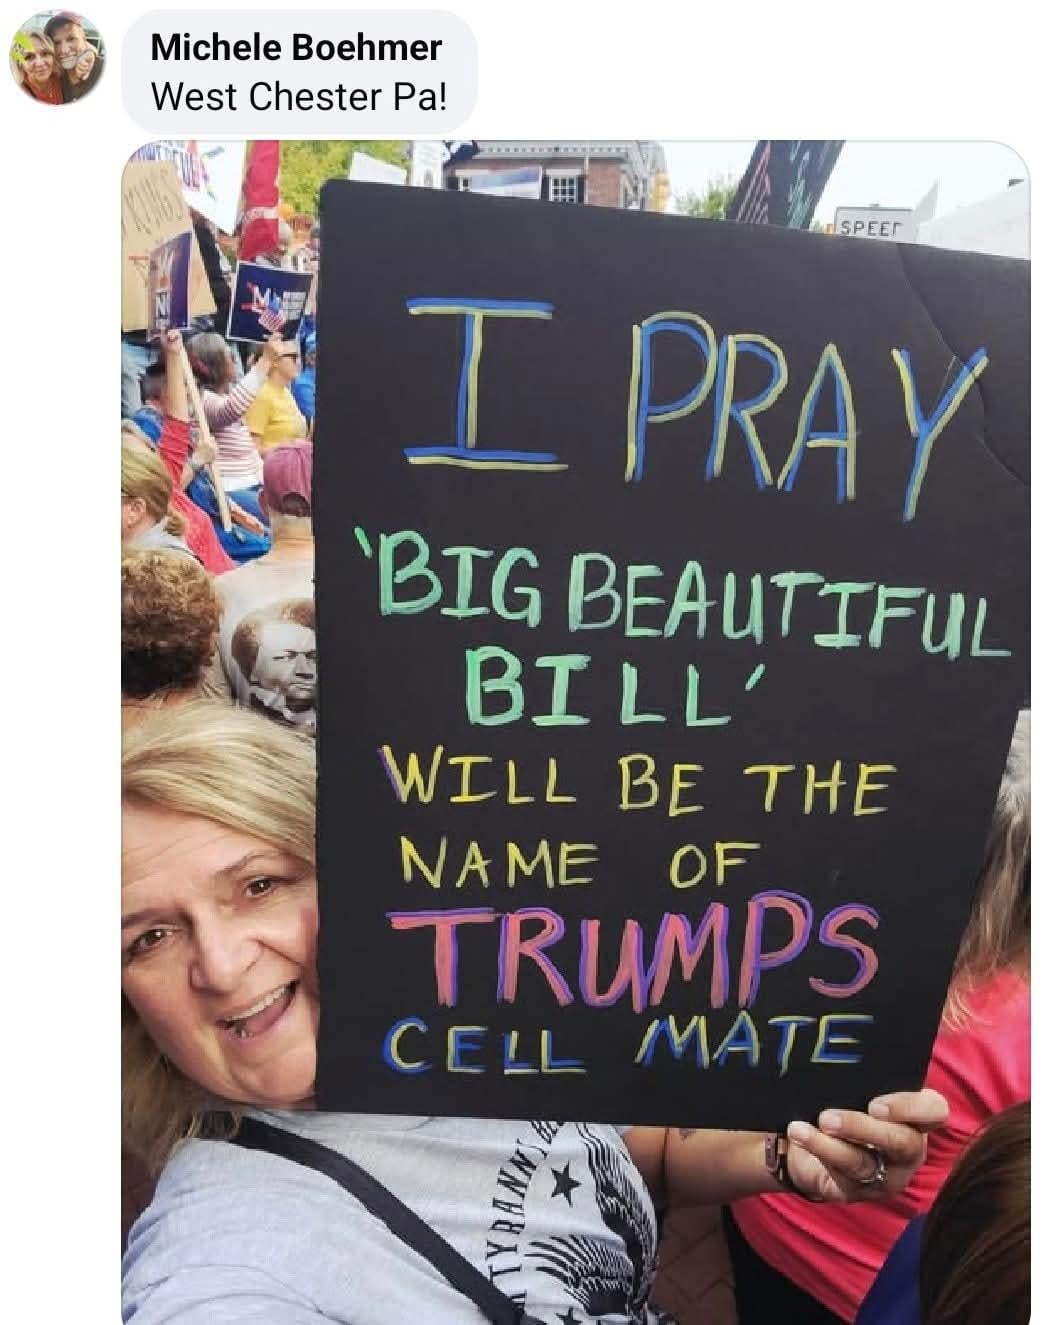 Michele Boehmer
West Chester Pa!
KINGS
SPEED
I PRAY
'BIG BEAUTIFUL
BILL'
WILL BE THE
NAME OF
TRUMPS
CELL MATE
TYRANNY